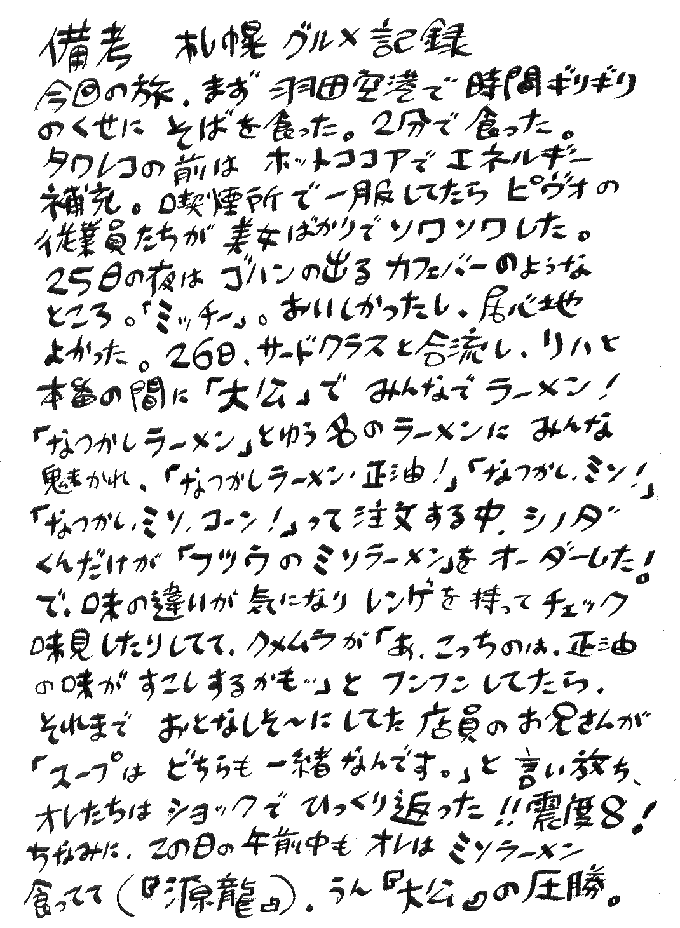 備考 札幌グルメ記録
今回の旅、まず羽田空港で時間ギリギリ
のくせにそばを食った。2分で食った。
タワレコの前はホットココアでエネルギー
補充。喫煙所で一服してたらピヴォの
従業員たちが美女ばかりでソワソワした。
25日の夜はゴハンの出るカフェバーのような
ところ。「ミッチー」。おいしかったし、居心地
よかった。26日、サードクラスと合流し、リハと
本番の間に「大公」でみんなでラーメン!
「なつかしラーメン」とゆう名のラーメンにみんな
魅かれ、「なつかしラーメン・正油!」「なつかし、ミソ!」
「なつかし、ミソ、コーン!」って注文する中、シノダ
くんだけが「フツウのミソラーメン」をオーダーした!
で、味の違いが気になりレンゲを持ってチェック
味見したりしてて、クメムラが「あ、こっちのは、正油
の味がすこしするかも…」とフンフンしてたら、
それまでおとなしそ〜にしてた店員のお兄さんが
「スープはどちらも一緒なんです。」と言い放ち、
オレたちはショックでひっくり返った!!震度8!
ちなみに、この日の午前中もオレはミソラーメン
食ってて(『源龍』)、うん『大公』の圧勝。